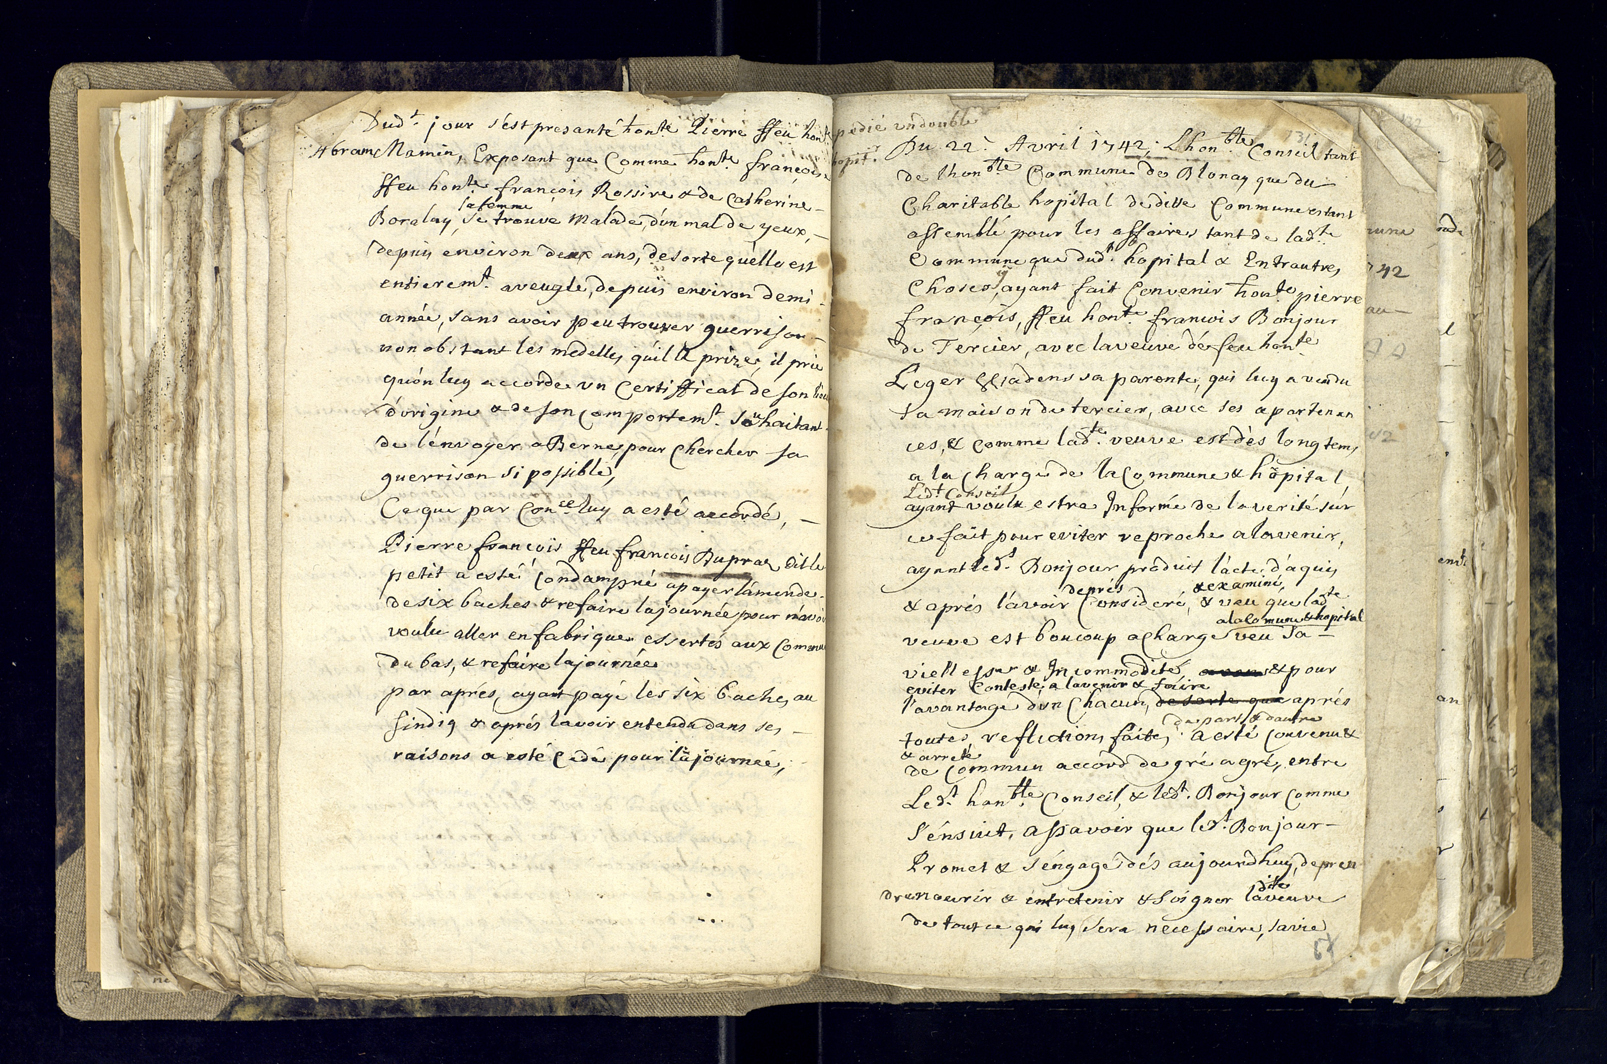 Dud.t jour s'est presanté hon.te Pierre ffeu hon.te
Abram Mamin, Exposant que Comme hon.te françoise
ffeu hon.te françois Rossire & de Catherine
sa femme
Boralay, se trouve malade d'un mal de yeux,
depuis environ deux ans, desorte quelle est
entierem.t aveugle, depuis environ demi
année, sans avoir peu trouver guerrison
nonobstant les medelles quil la prize, il prie
quon luy accorde un Certifficat de son lieu
d'origine & de son comportem.t Souhaitant
de l'envoyer a Berne, pour Chercher sa
guerrison si possible,
Ce que par Con.ce luy a esté accordé,
Pierre françois ffeu françois Dupraz dit le
petit a esté Condampné a payer lamende
de six baches & refaire la journée pour n'avoir
voulu aller en fabrique essertes aux Commun
du bas, & refaire la journée
par aprés, ayant payé les six baches au
sindiq & aprés l'avoir entendu dans ses
raisons a esté Cedé pour la journée,
pedié un double
hopit.l
Du 22.e Avril 1742, L'hon.ble Conseil tant
de l'hon.ble Commune de Blonay que du
Charitable hopital de ditte Commune estant
assemblé pour les affaires tant de lad.te
Commune que dud.t hopital & Entrautres
Choses, ayant fait Convenir hon.te pierre
françois, ffeu hon.te francois Bonjour
de Tercier, avec la veuve de feu hon.te
Leger sa parente, qui luy a vendu
sa maison de tercier, avec ses apartenan
ces, & comme lad.te veuve est dès longtems
a la charge de la Commune & hôpital,
Led.t Conseil
ayant voulu estre Informé de la verité sur
ce fait pour eviter reproche a lavenir,
ayant led.t Bonjour produit l'acte d'aquis
deprés & examiné,
& aprés l'avoir Consideré, & veu que lad.te
a la Comune & hopital
veuve est boucoup a charge veu sa
viellesse & Incommodité, & pour
eviter Conteste a lavenir & faire
l'avantage d'un Chacun, de sorte que aprés
de part & dautre
toutes reflections faites, a esté Convenu &
& arreté
de Commun accord de gré a gré, entre
Led.t hon.ble Conseil, & led.t Bonjour Comme
s'ensuit, assavoir que led.t Bonjour
Promet & s'engage dés aujourdhuy, de pren
dre nourir & entretenir & soigner ladite veuve
de tout ce qui luy sera necessaire, sa vie